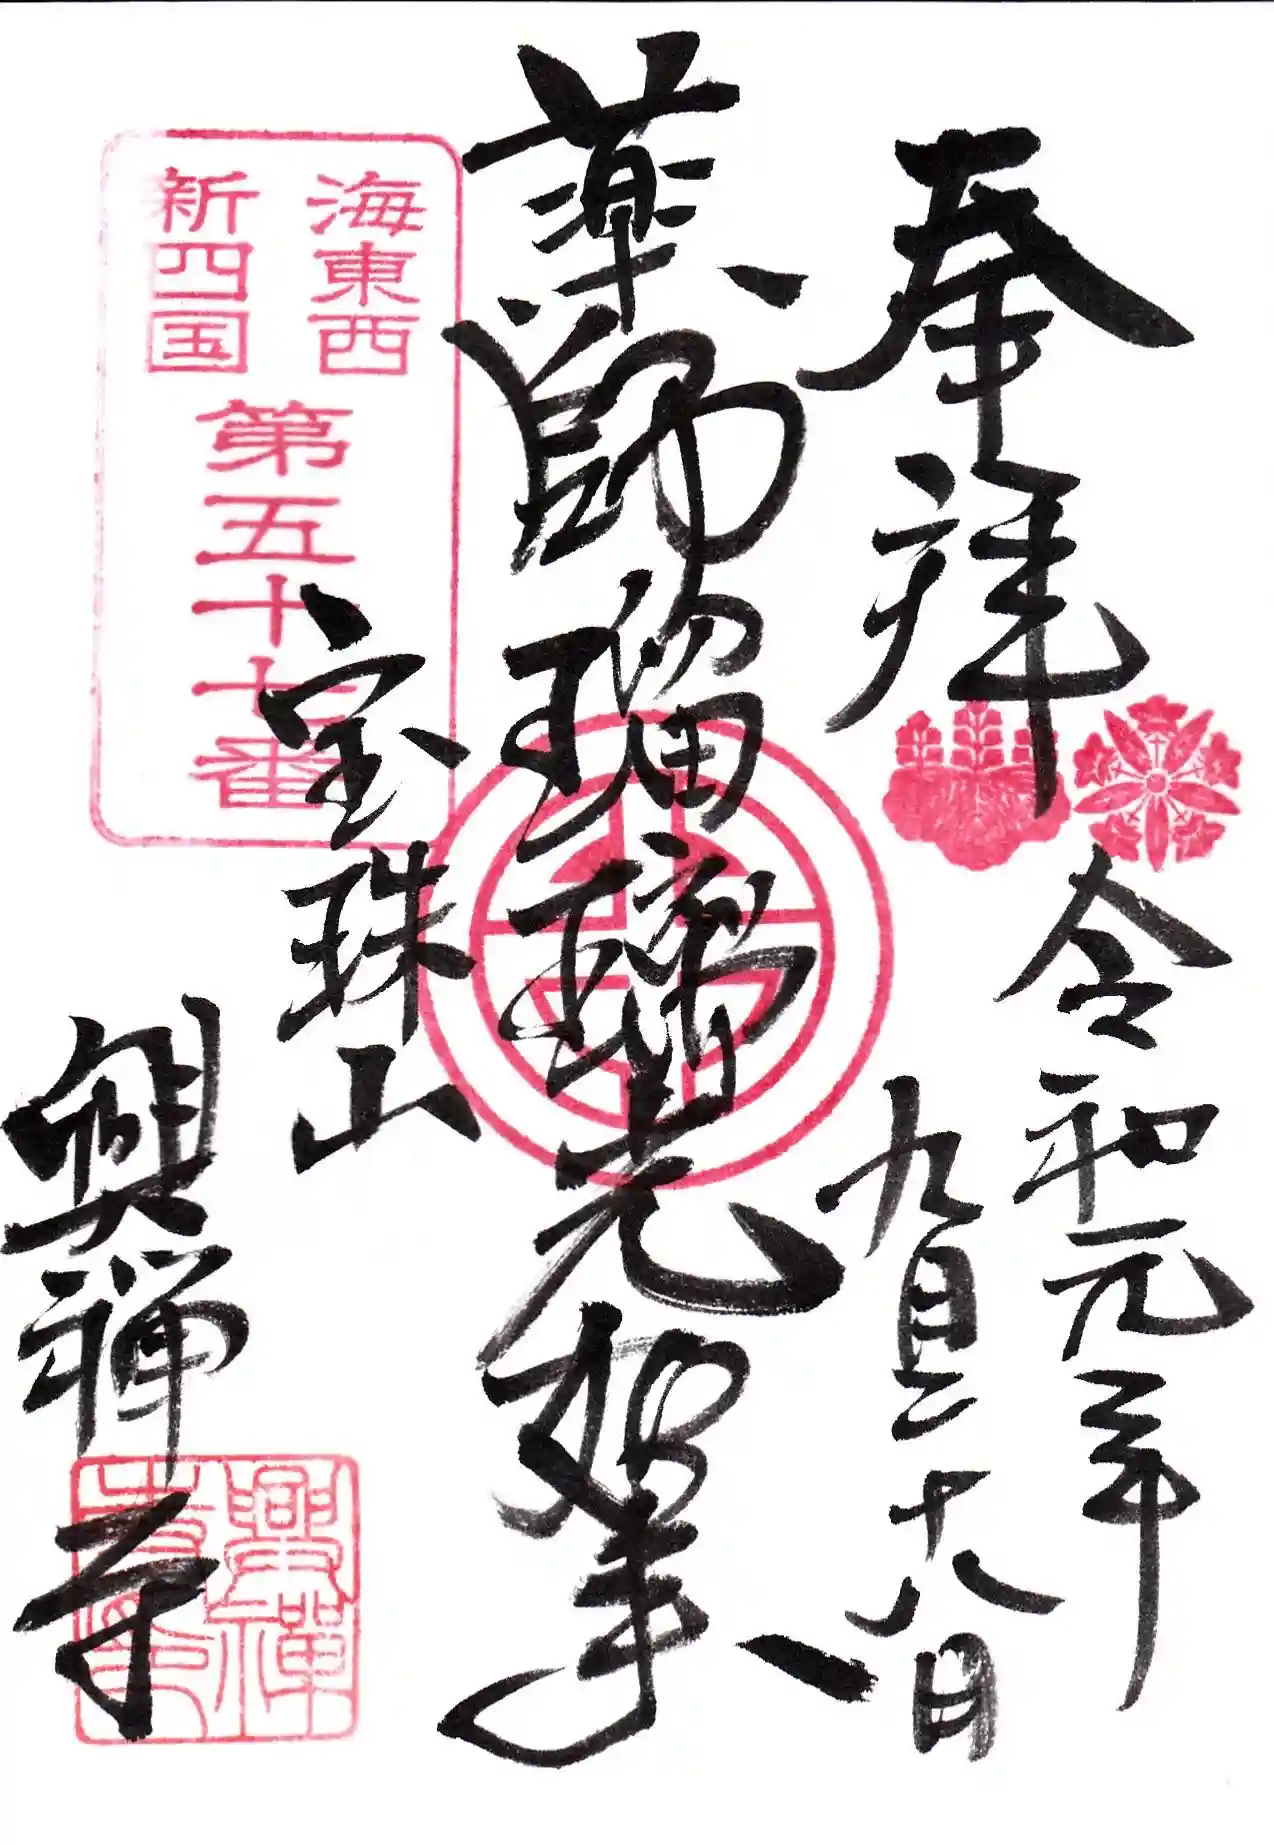 奉拝
令和元年
九月二十八日
薬師瑠璃光如来
海東西
新四国
第五十七番
宝珠山
興禅寺
興禅
寺印